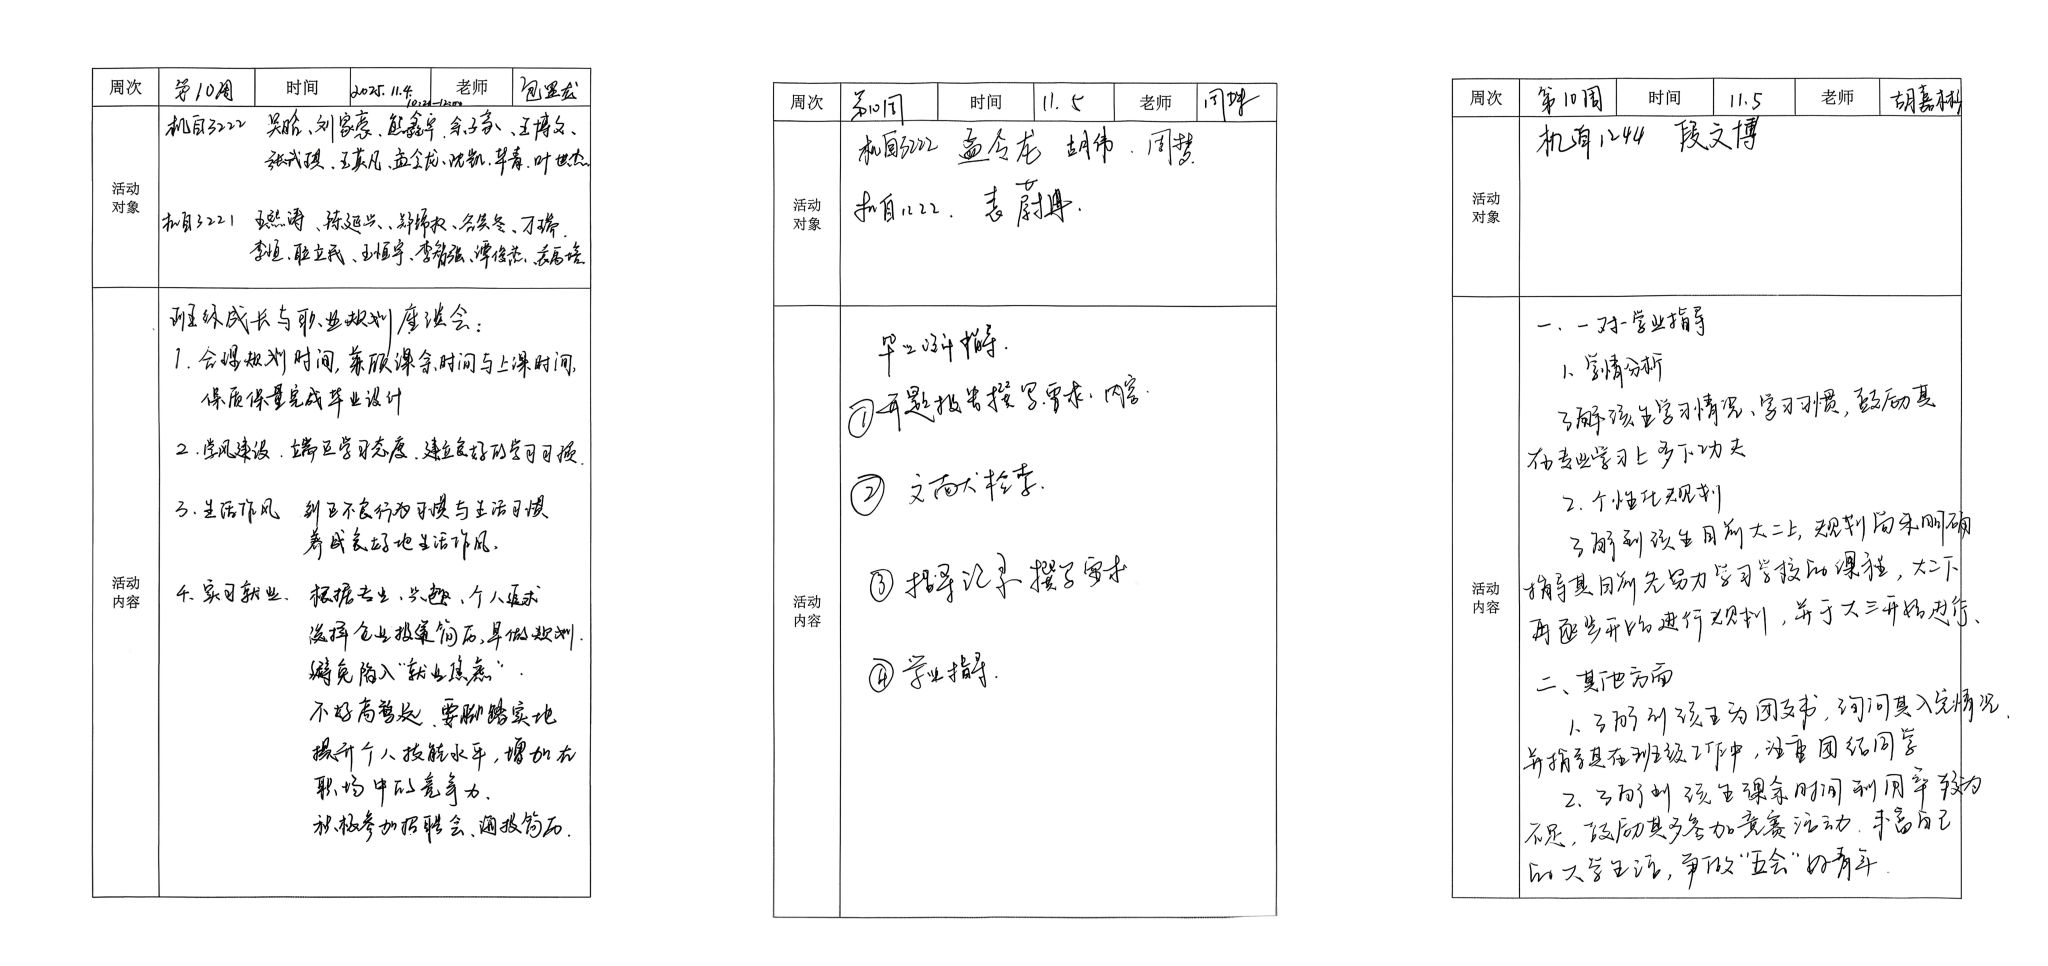 周次 第10周 时间 2025.11.4. 10:20-12:00 老师
活动对象
机自3222 吴晗、刘家豪、熊鑫宇、余子豪、王博文、
张武琪、王英凡、孟令龙、沈凯、毕青、叶世杰
机自3221 王熙涛、陈延兴、
李恒、耿立民、王恒宇、李智强、谭俊杰、
活动内容
班级成长与职业规划座谈会：
1. 合理规划时间，兼顾课余时间与上课时间，
保质保量完成毕业设计
2. 学风建设、端正学习态度、建立良好的学习习惯.
3. 生活作风 纠正不良行为习惯与生活习惯
养成良好地生活作风.
4. 实习就业. 根据专业、兴趣、个人追求
选择企业投递简历，早做规划.
避免陷入“就业焦虑”.
不好高骛远、要脚踏实地
提升个人技能水平，增加在
职场中的竞争力.
积极参加招聘会、通投简历.
周次 第10周 时间 11.5 老师
活动对象
机自3222 孟令龙 胡伟、周梦
机自1222. 袁蔚
活动内容
毕业设计指导.
①开题报告撰写要求、内容.
② 文献检索.
③ 指导记录撰写要求
④ 学业指导.
周次 第10周 时间 11.5 老师 胡嘉彬
活动对象
机自1244 段文博
活动内容
一、一对一学业指导
1、学情分析
了解该生学习情况、学习习惯，鼓励其
在专业学习上多下功夫
2、个性化规划
了解到该生目前大二上，规划尚未明确
指导其目前先努力学习学校的课程，大二下
再逐步开始进行规划，并于大三开始进行、
二、其他方面
1、了解到该生为团支书，询问其入党情况，
并指导其在班级工作中，注重团结同学
2、了解到该生课余时间利用率较为
不足，鼓励其多参加竞赛活动、丰富自己
的大学生活，争做“五会”好青年.